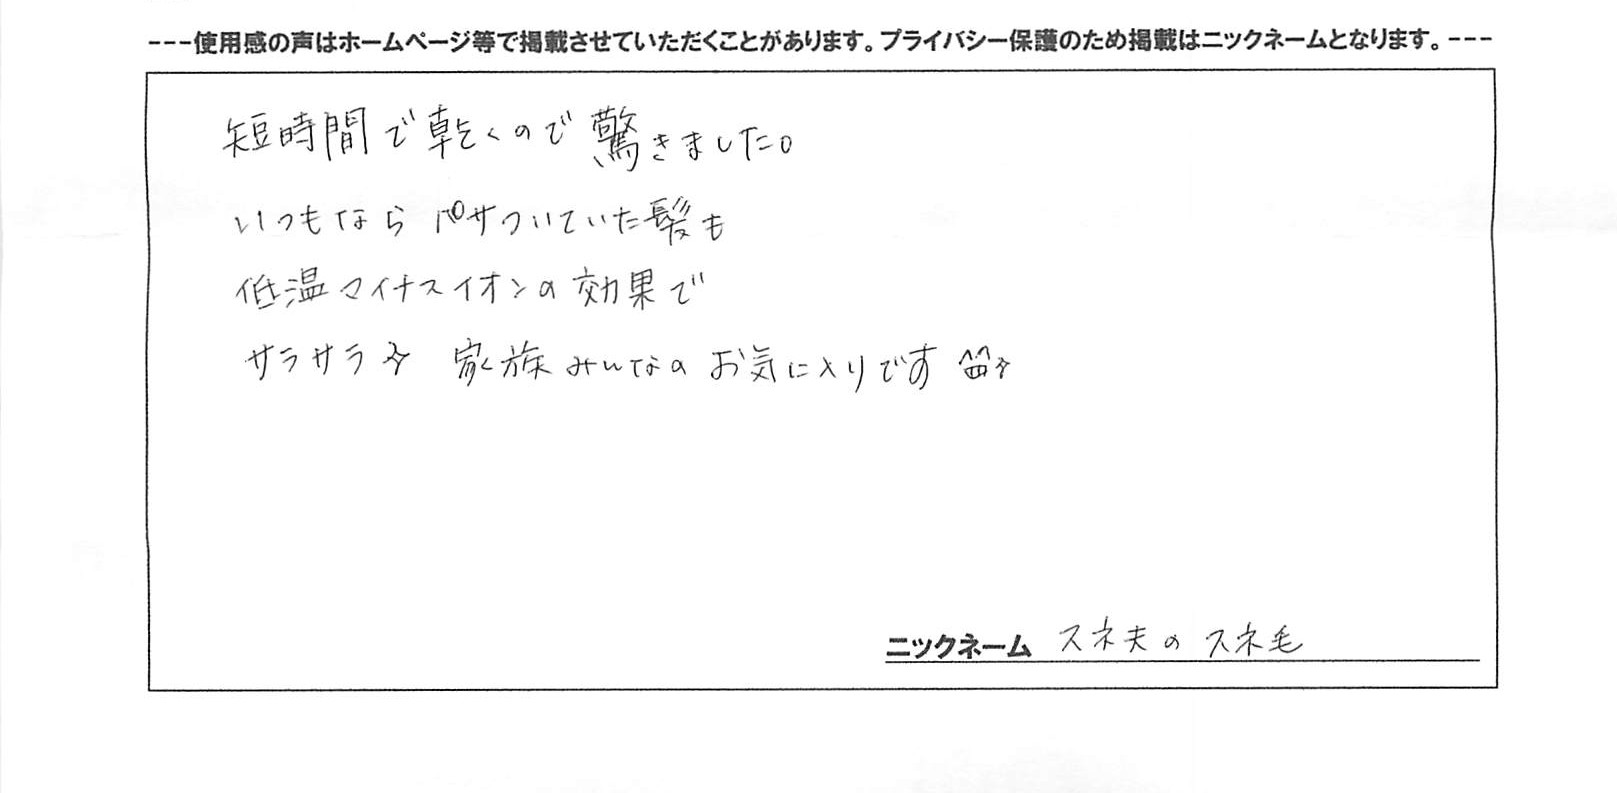 ---使用感の声はホームページ等で掲載させていただくことがあります。プライバシー保護のため掲載はニックネームとなります。---
短時間で乾くので驚きました。
いつもならパサついていた髪も
低温マイナスイオンの効果で
サラサラ☆ 家族みんなのお気に入りです ^^☆
ニックネーム スネ夫の スネ毛